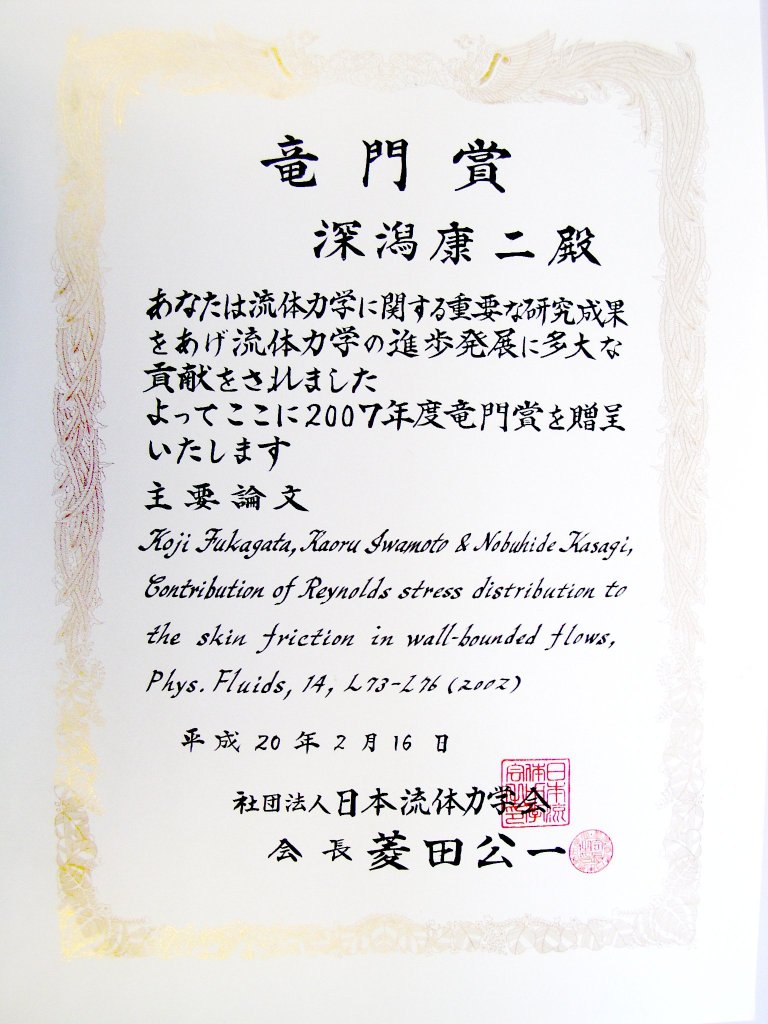 竜門賞
深潟康二殿
あなたは流体力学に関する重要な研究成果
をあげ流体力学の進歩発展に多大な
貢献をされました
よってここに2007年度竜門賞を贈呈
いたします
主要論文
Koji Fukagata, Kaoru Iwamoto & Nobuhide Kasagi,
Contribution of Reynolds stress distribution to
the skin friction in wall-bounded flows,
Phys. Fluids, 14, L73-L76 (2002)
平成20年2月16日
社団法人日本流体力学会
会長 菱田公一